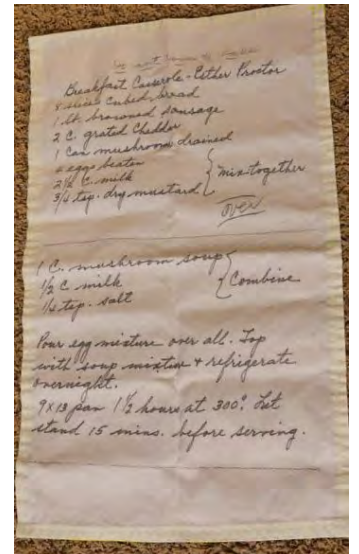 Breakfast Casserole - Esther Proctor
8 slices cubed bread
1 lb. browned sausage
2 C. grated Cheddar
1 can mushroom drained
4 eggs beaten
2 1/2 C. milk
3/4 tsp. dry mustard
mix together
over
1 C. mushroom soup
1/2 C milk
1/2 tsp. salt
Combine
Pour egg mixture over all. Top
with soup mixture + refrigerate
overnight.
9x13 pan 1 1/2 hours at 300°. Let
stand 15 mins. before serving.